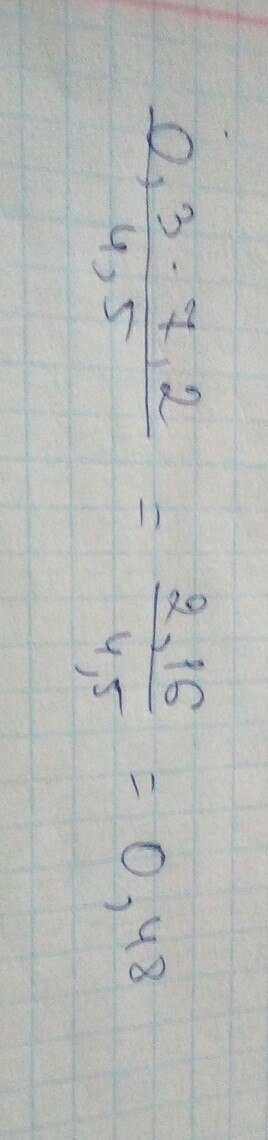 0,3 · 7,2 / 4,5 = 2,16 / 4,5 = 0,48